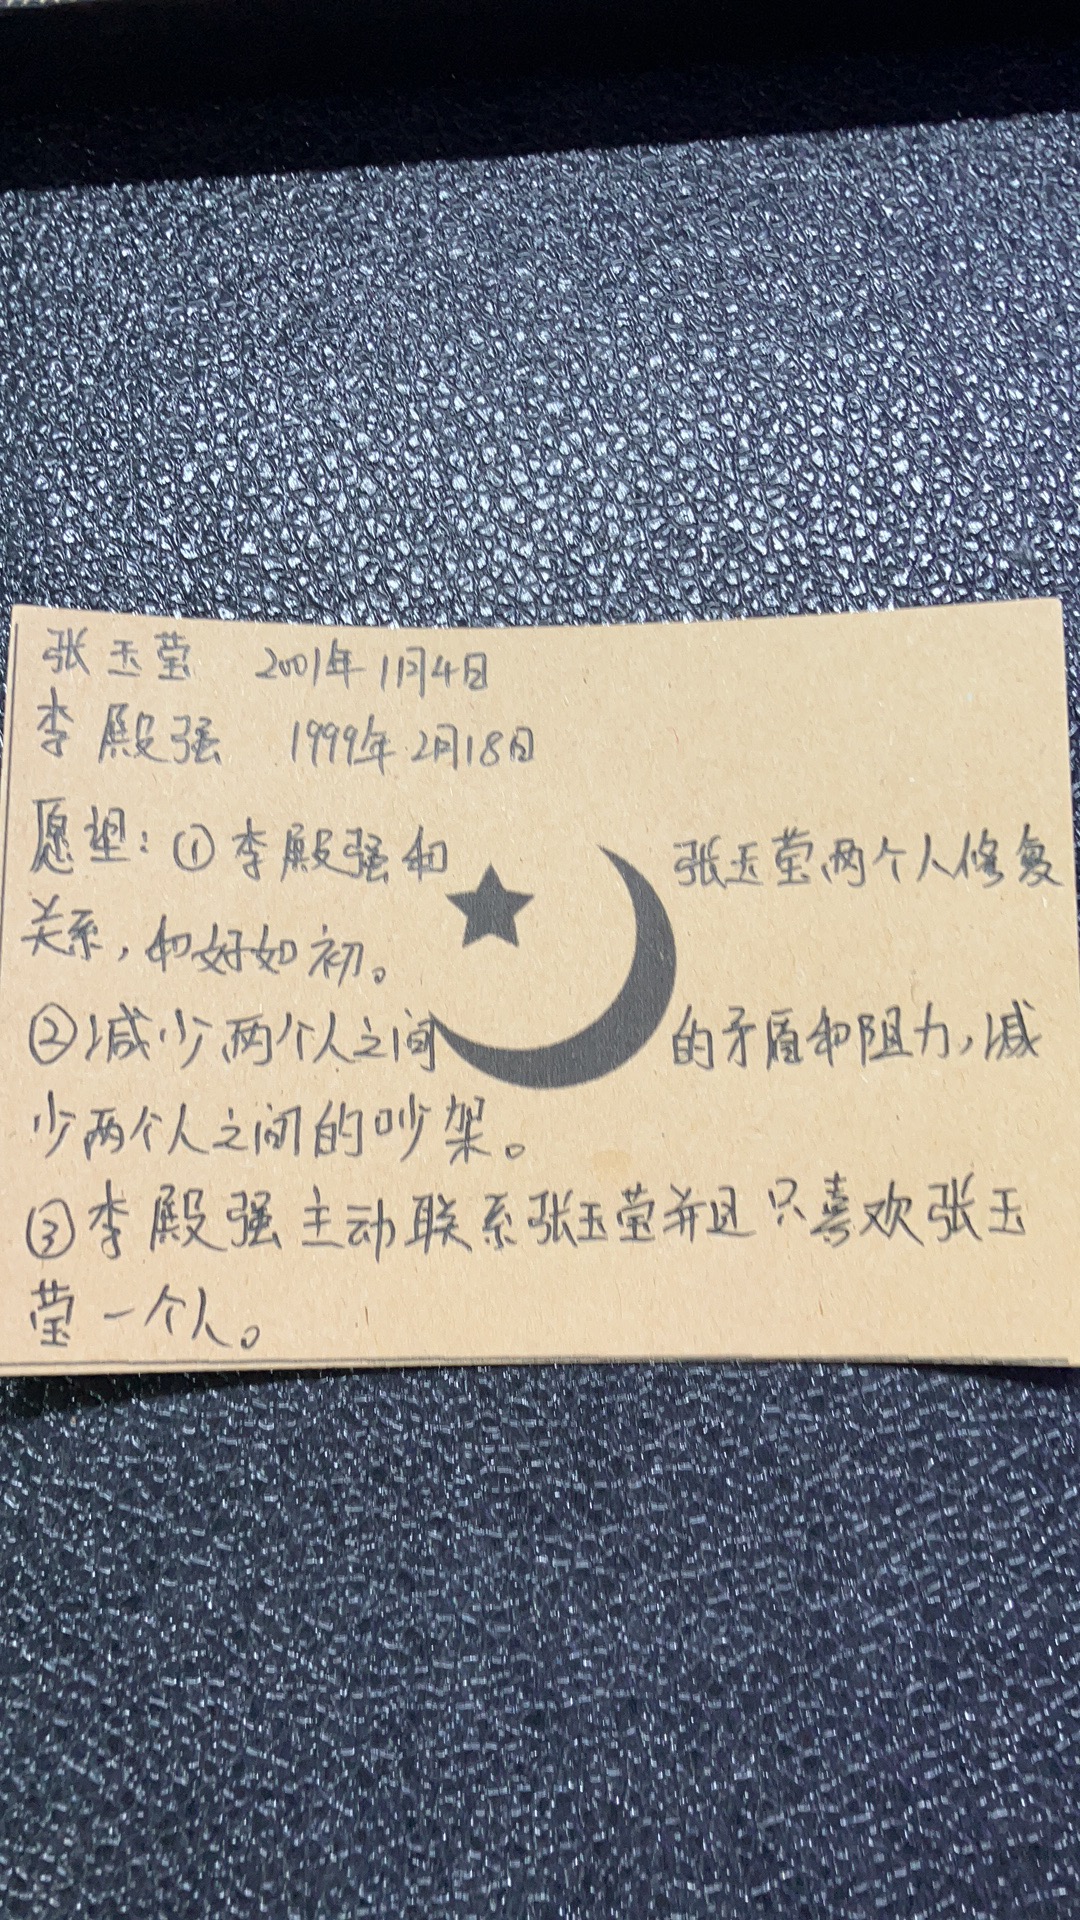 张玉莹 2001年11月4日
李殿强 1999年2月18日
愿望：①李殿强和张玉莹两个人修复
关系，和好如初。
②减少两个人之间的矛盾和阻力，减
少两个人之间的吵架。
③李殿强主动联系张玉莹并且只喜欢张玉
莹一个人。